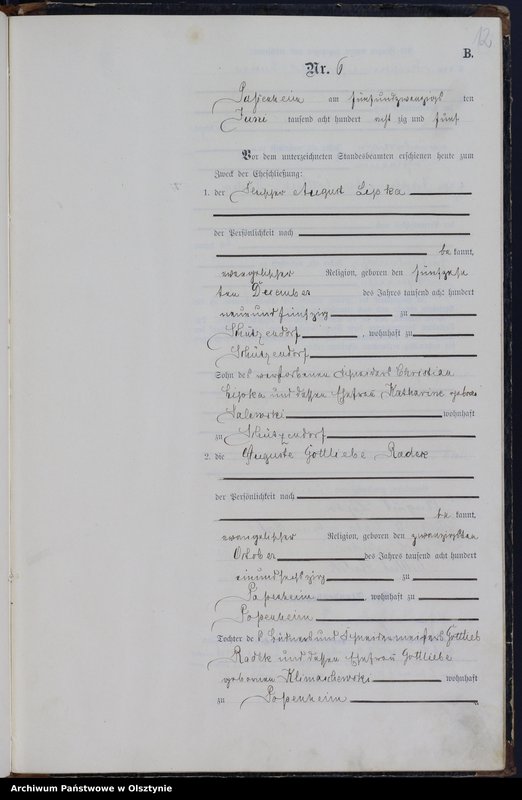 12
B.
Nr. 6
Passenheim am fünfundzwanzigs ten
Juni tausend acht hundert acht zig und fünf
Vor dem unterzeichneten Standesbeamten erschienen heute zum
Zweck der Eheschließung:
1. der August Lipka
der Persönlichkeit nach
be kannt,
evangelischer Religion, geboren den fünfzehn
ten December des Jahres tausend acht hundert
neunundfünfzig zu
Schützendorf, wohnhaft zu
Schützendorf
Sohn des verstorbenen Schneiders Christian
Lipka und dessen Ehefrau Katharine geborne
Salewski wohnhaft
zu Schützendorf
2. die Auguste Gottliebe Radek
der Persönlichkeit nach
be kannt,
evangelischer Religion, geboren den zwanzigsten
October des Jahres tausend acht hundert
einundsechszig zu
Passenheim, wohnhaft zu
Passenheim
Tochter des und Schneidermeisters Gottlieb
Radek und dessen Ehefrau Gottliebe
gebornen Klimaschewski wohnhaft
zu Passenheim
Archiwum Państwowe w Olsztynie